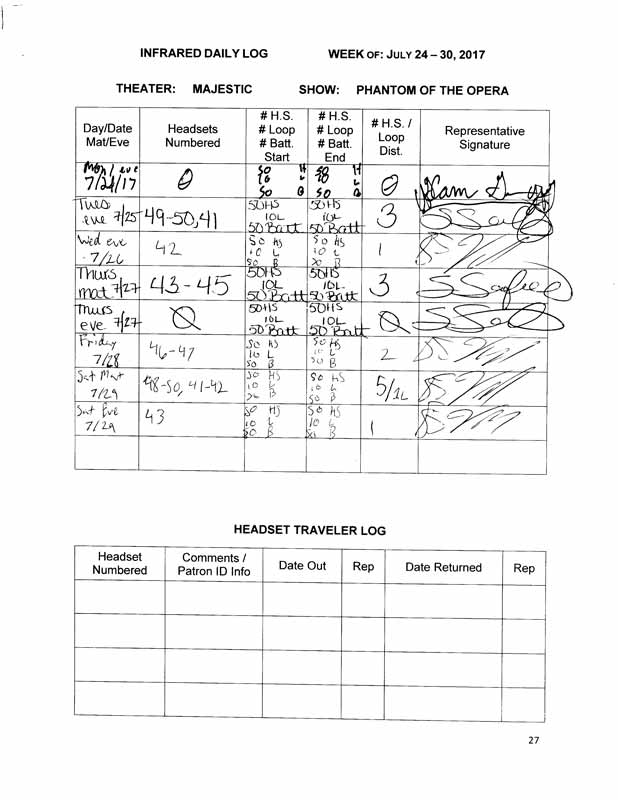 INFRARED DAILY LOG WEEK OF: JULY 24 – 30, 2017
THEATER: MAJESTIC SHOW: PHANTOM OF THE OPERA
Day/Date Mat/Eve Headsets Numbered # H.S. # Loop # Batt. Start # H.S. # Loop # Batt. End # H.S. / Loop Dist. Representative Signature
Mon/eve 7/24/17 0 50 H 10 L 50 B 50 H 10 L 50 B 0
Tues eve 7/25 49-50, 41 50HS 10L 50 Batt 50HS 10L 50 Batt 3
Wed eve 7/26 42 50 HS 10 L 50 B 50 HS 10 L 50 B 1
Thurs mat 7/27 43-45 50HS 10L 50 Batt 50HS 10L 50 Batt 3
Thurs eve 7/27 0 50HS 10L 50 Batt 50HS 10L 50 Batt 0
Friday 7/28 46-47 50 HS 10 L 50 B 50 HS 10 L 50 B 2
Sat Mat 7/29 48-50, 41-42 50 HS 10 L 50 B 50 HS 10 L 50 B 5/1L
Sat Eve 7/29 43 50 HS 10 L 50 B 50 HS 10 L 50 B 1
HEADSET TRAVELER LOG
Headset Numbered Comments / Patron ID Info Date Out Rep Date Returned Rep
27